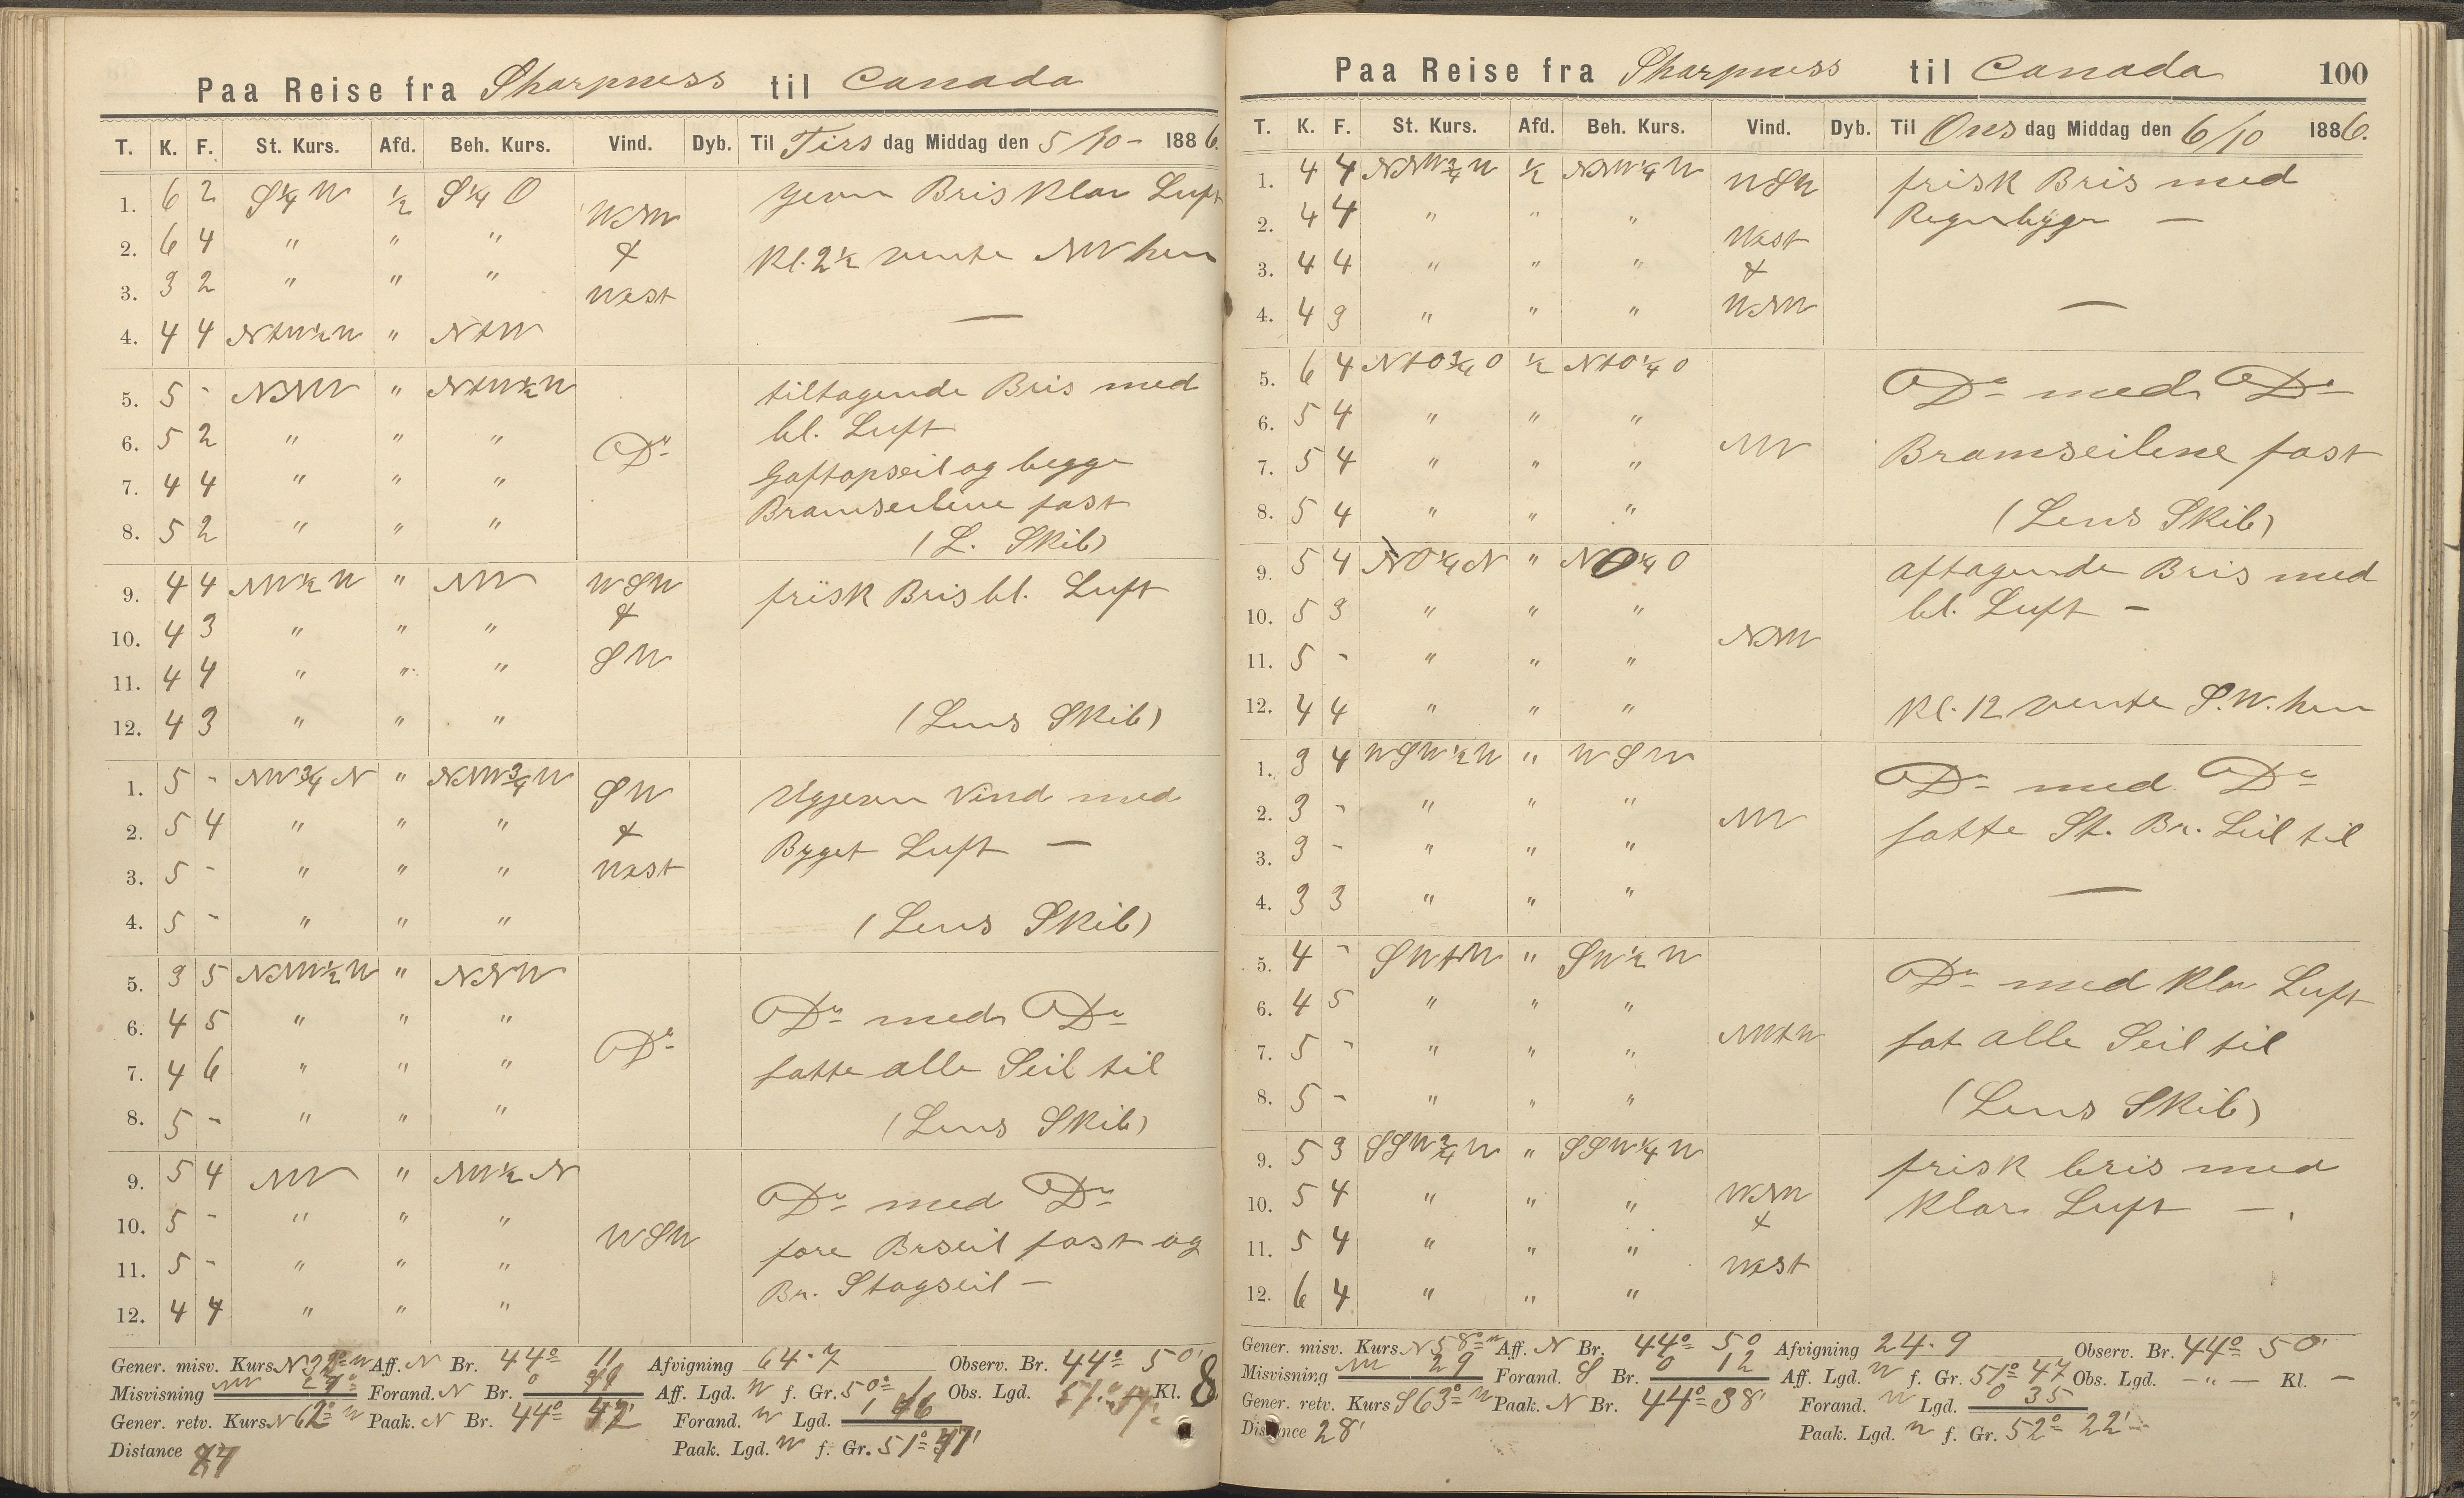 Paa Reise fra Sharpness til Canada
T. K. F. St. Kurs. Afd. Beh. Kurs. Vind. Dyb. Til Tirs dag Middag den 5/10 - 1886.
1. 6 2 S¼W ½ S¼O WNW jevn Bris klar Luft
2. 6 4 " " " & Kl. 2½ vente NW hen
3. 3 2 " " " West
4. 4 4 NtW½W " NtW —
5. 5 - NNW " NtW½W tiltagende Bris med
6. 5 2 " " " Do bl. Luft
7. 4 4 " " " Gaftopseil og begge
Bramseilene fast
8. 5 2 " " " (L. Skib)
9. 4 4 NW½W " NW WSW frisk Bris bl. Luft
10. 4 3 " " " &
11. 4 4 " " " SW
12. 4 3 " " " (Lens Skib)
1. 5 - NW¾N " NNW¾W SW Ugjevn Vind med
2. 5 4 " " " & Byget Luft —
3. 5 - " " " West
4. 5 - " " " (Lens Skib)
5. 3 5 NNW½W " NNW
6. 4 5 " " " Do med Do
7. 4 6 " " " Do satte alle Seil til
8. 5 - " " " (Lens Skib)
9. 5 4 NW " NW½N Do med Do
10. 5 - " " " WSW fore Brseil fast og
11. 5 - " " " Br. Stagseil —
12. 4 4 " " "
Gener. misv. Kurs N 32° W Aff. N Br. 44° 11 Afvigning 64.7 Observ. Br. 44° 50'
Misvisning NW Forand. N Br. 0 Aff. Lgd. W f. Gr. 50° 1 Obs. Lgd. Kl. 8
Gener. retv. Kurs N 62° W Paak. N Br. 44° 42' Forand. W Lgd. 1 46
Distance Paak. Lgd. W f. Gr. 51° 47'
Paa Reise fra Sharpness til Canada 100
T. K. F. St. Kurs. Afd. Beh. Kurs. Vind. Dyb. Til Ons dag Middag den 6/10 1886.
1. 4 4 NNW¾W ½ NNW¼W WSW frisk Bris med
2. 4 4 " " " West Regnbyger —
3. 4 4 " " " &
4. 4 3 " " " WNW —
5. 6 4 NtO¾O ½ NtO¼O Do med Do
6. 5 4 " " "
7. 5 4 " " " NW Bramseilene fast
8. 5 4 " " " (Lens Skib)
9. 5 4 NO¼N " NO¼O aftagende Bris med
10. 5 3 " " " bl. Luft —
11. 5 - " " " NNW
12. 4 4 " " " Kl. 12 vente S.W. hen
1. 3 4 WSW½W " WSW Do med Do
2. 3 - " " " NW satte St. Br. Seil til
3. 3 - " " "
4. 3 3 " " " —
5. 4 - SWtW " SW½W Do med klar Luft
6. 4 5 " " "
7. 5 - " " " NWtW sat alle Seil til
8. 5 - " " " (Lens Skib)
9. 5 3 SSW¾W " SSW¼W frisk bris med
10. 5 4 " " " WNW klar Luft —
11. 5 4 " " " & West
12. 6 4 " " "
Gener. misv. Kurs N 58° W Aff. N Br. 44° 50 Afvigning 24.9 Observ. Br. 44° 50'
Misvisning NW 29 Forand. S Br. 0 12 Aff. Lgd. W f. Gr. 51° 47 Obs. Lgd. — " — Kl. —
Gener. retv. Kurs S 63° W Paak. N Br. 44° 38' Forand. W Lgd. 0 35
Distance 28' Paak. Lgd. W f. Gr. 52° 22'